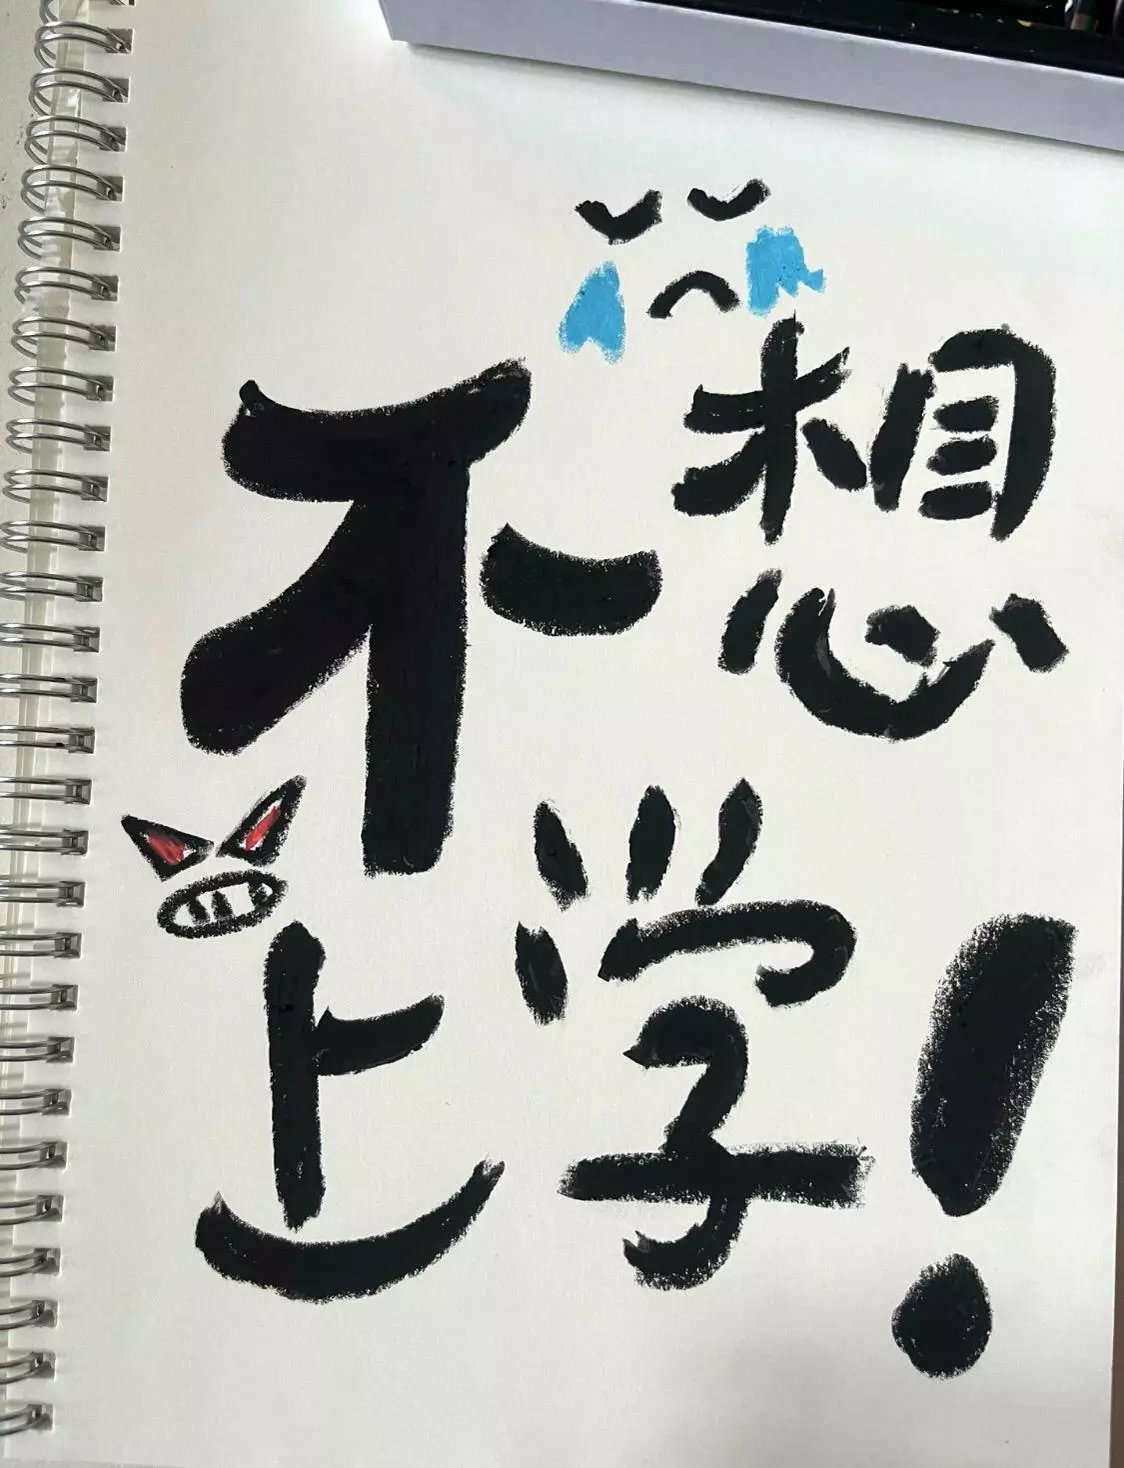 不想
上学！